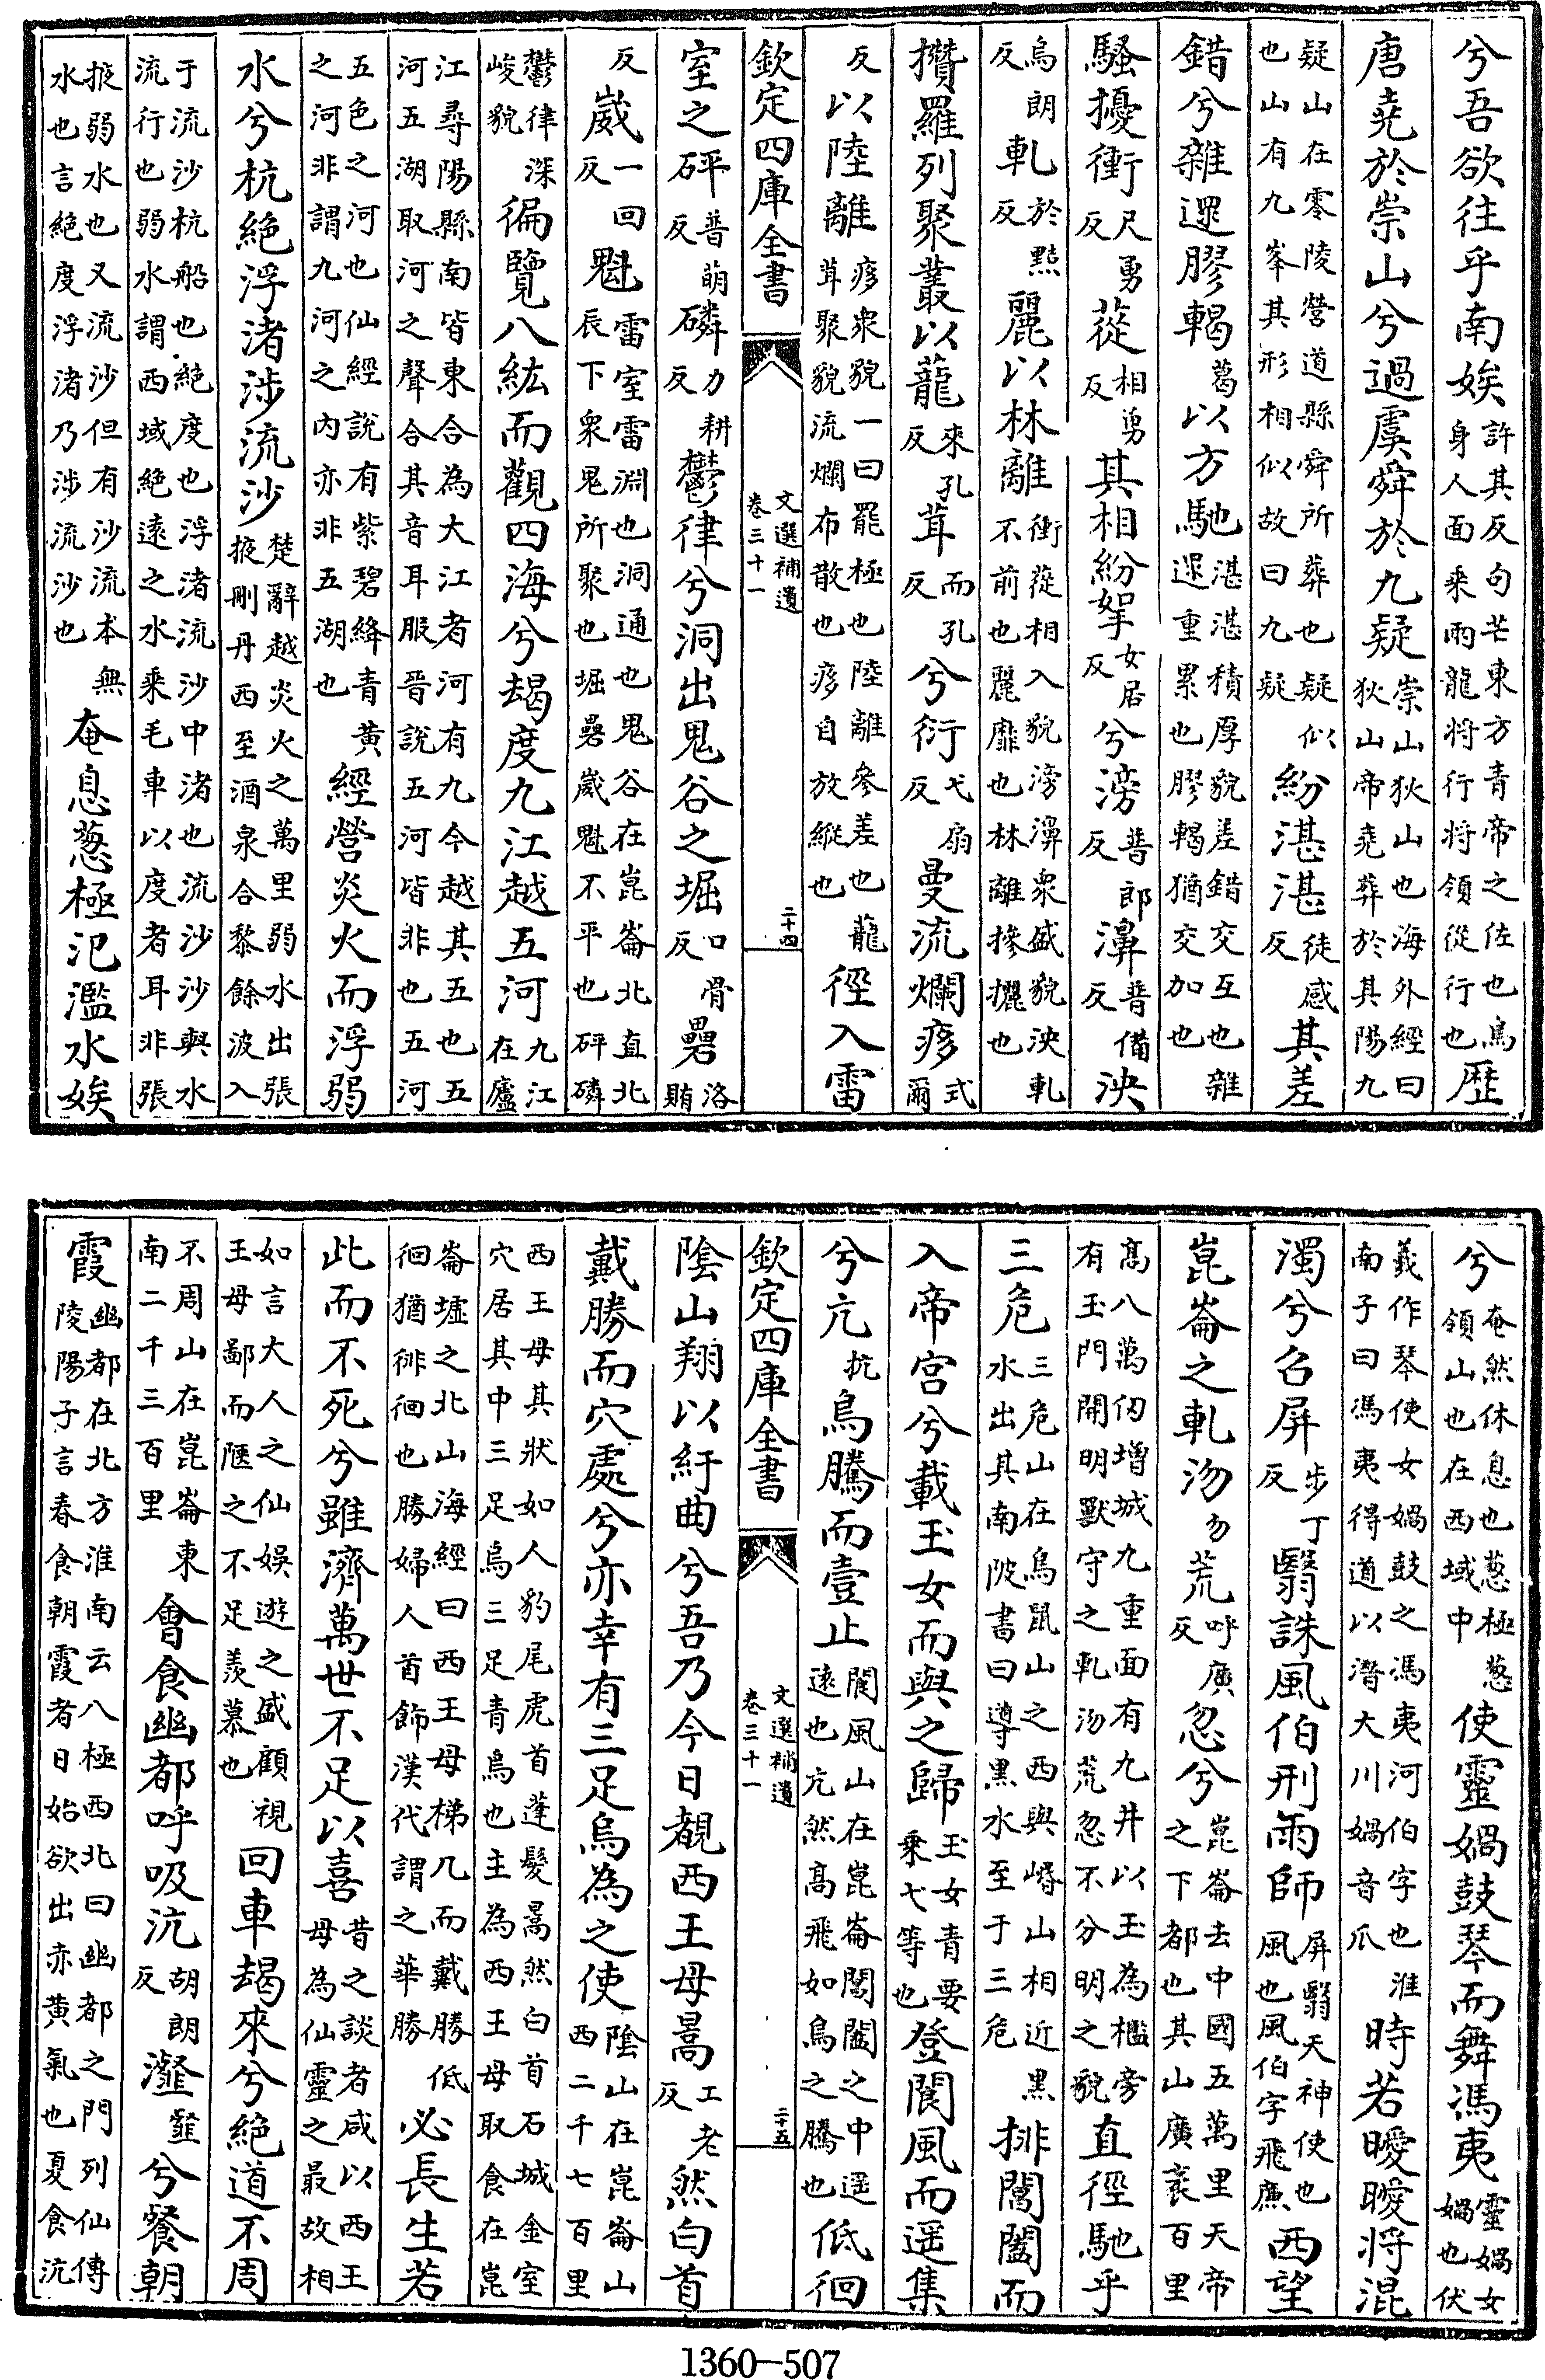 兮吾欲往乎南娭許其反句芒東方青帝之佐也鳥身人面乘兩龍將行將領從行也歷
唐堯於崇山兮過虞舜於九疑崇山狄山也海外經曰狄山帝堯葬於其陽九
疑山在零陵營道縣舜所葬也疑似也山有九峯其形相似故曰九疑紛湛湛徒感反其差
錯兮雜遝膠輵葛以方馳湛湛積厚貌差錯交互也雜遝重累也膠輵猶交加也
騷擾衝尺勇反蓯相勇反其相紛挐女居反兮滂普郎反濞普備反泱
烏朗反軋於黠反麗以林離衝蓯相入貌滂濞衆盛貌泱軋不前也麗靡也林離摻攦也
攢羅列聚叢以蘢來孔反茸而孔反兮衍弋扇反曼流爛痑式爾
反以陸離痑衆貌一曰罷極也陸離參差也蘢茸聚貌流爛布散也痑自放縱也徑入雷
欽定四庫全書 文選補遺卷三十一 二十四
室之砰普萌反磷力耕反鬱律兮洞出鬼谷之堀口骨反礨洛賄
反崴一回反魁雷室雷淵也洞通也鬼谷在崑崙北直北辰下衆鬼所聚也堀礨崴魁不平也砰磷
鬱律深峻貌徧覽八紘而觀四海兮朅度九江越五河九江在廬
江尋陽縣南皆東合為大江者河有九今越其五也五河五湖取河之聲合其音耳服晉說五河皆非也五河
五色之河也仙經說有紫碧絳青黃之河非謂九河之內亦非五湖也經營炎火而浮弱
水兮杭絕浮渚涉流沙楚辭越炎火之萬里弱水出張掖刪丹西至酒泉合黎餘波入
于流沙杭船也絕度也浮渚流沙中渚也流沙沙與水流行也弱水謂西域絕遠之水乘毛車以度者耳非張
掖弱水也又流沙但有沙流本無水也言絕度浮渚乃涉流沙也奄息葱極氾濫水娭
兮奄然休息也葱極葱領山也在西域中使靈媧鼓琴而舞馮夷靈媧女媧也伏
羲作琴使女媧鼓之馮夷河伯字也淮南子曰馮夷得道以潛大川媧音瓜時若曖曖將混
濁兮召屏步丁反翳誅風伯刑雨師屏翳天神使也風也風伯字飛廉西望
崑崙之軋沕勿荒呼廣反忽兮崑崙去中國五萬里天帝之下都也其山廣袤百里
高八萬仞增城九重面有九井以玉為檻旁有玉門開明獸守之軋沕荒忽不分明之貌直徑馳乎
三危三危山在鳥鼠山之西與㟭山相近黑水出其南陂書曰導黑水至于三危排閶闔而
入帝宮兮載玉女而與之歸玉女青要乘弋等也登閬風而遥集
兮亢抗鳥騰而壹止閬風山在崑崙閶闔之中遥遠也亢然高飛如鳥之騰也低徊
欽定四庫全書 文選補遺卷三十一 二十五
陰山翔以紆曲兮吾乃今日覩西王母暠工老反然白首
戴勝而穴處兮亦幸有三足烏為之使陰山在崑崙山西二千七百里
西王母其狀如人豹尾虎首蓬髮暠然白首石城金室穴居其中三足烏三足青烏也主為西王母取食在崑
崙墟之北山海經曰西王母梯几而戴勝低徊猶徘徊也勝婦人首飾漢代謂之華勝必長生若
此而不死兮雖濟萬世不足以喜昔之談者咸以西王母為仙靈之最故相
如言大人之仙娛遊之盛顧視王母鄙而陋之不足羨慕也回車朅來兮絕道不周
不周山在崑崙東南二千三百里會食幽都呼吸沆胡朗反瀣韰兮餐朝
霞幽都在北方淮南云八極西北曰幽都之門列仙傳陵陽子言春食朝霞者日始欲出赤黃氣也夏食沆
1360—507